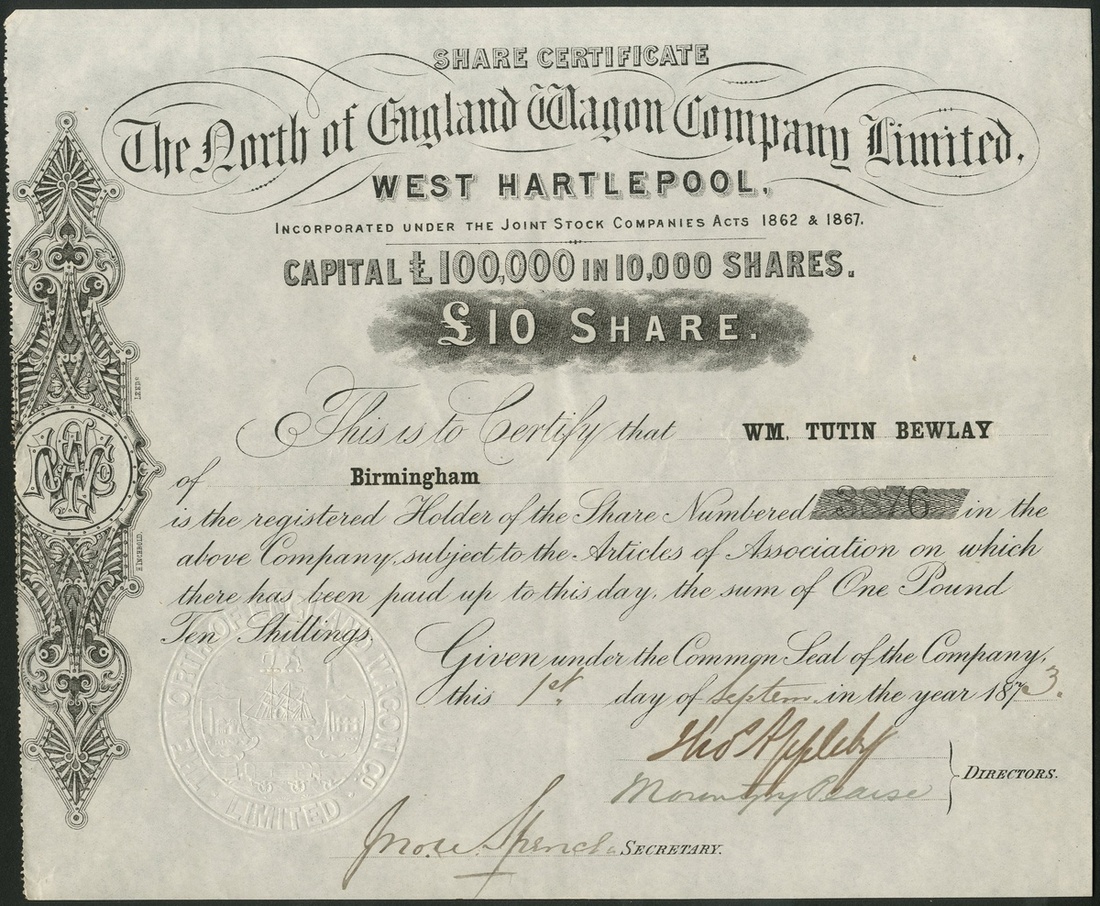 SHARE CERTIFICATE
The North of England Wagon Company Limited,
WEST HARTLEPOOL,
INCORPORATED UNDER THE JOINT STOCK COMPANIES ACTS 1862 & 1867.
CAPITAL £100,000 IN 10,000 SHARES.
£10 SHARE.
This is to Certify that WM. TUTIN BEWLAY
of Birmingham
is the registered Holder of the Share Numbered 3876 in the
above Company, subject to the Articles of Association on which
there has been paid up to this day, the sum of One Pound
Ten Shillings.
Given under the Common Seal of the Company,
this 1st day of Septem. in the year 1873.
Thos Appleby
Pearse
DIRECTORS.
Jno. W. Spence SECRETARY.
THE NORTH OF ENGLAND WAGON CO. LIMITED
LEEDS